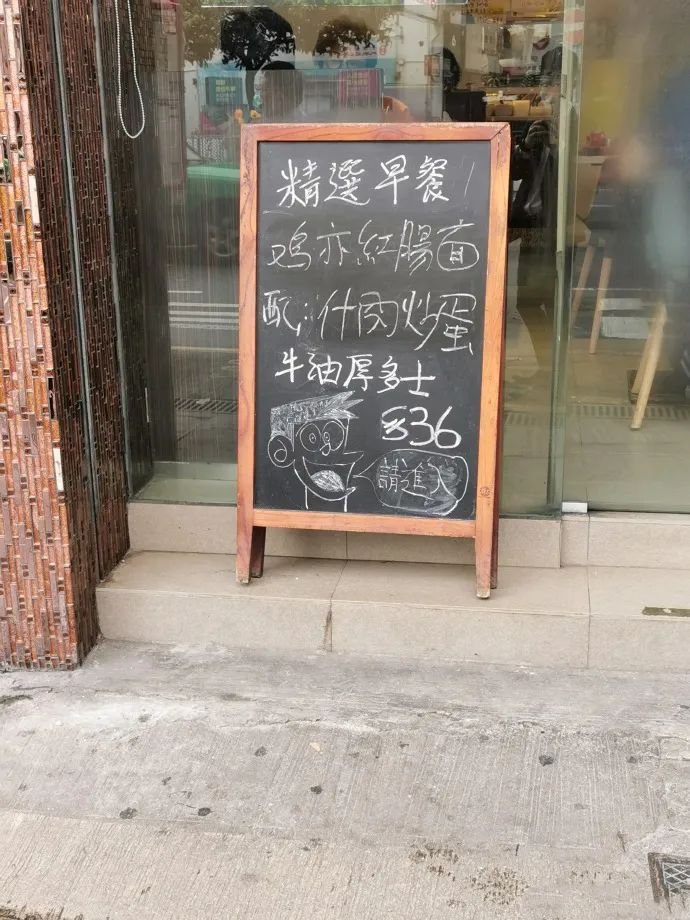 精選早餐!
鸡亦紅腸面
配:什肉炒蛋
牛油厚多士
$36
請進入